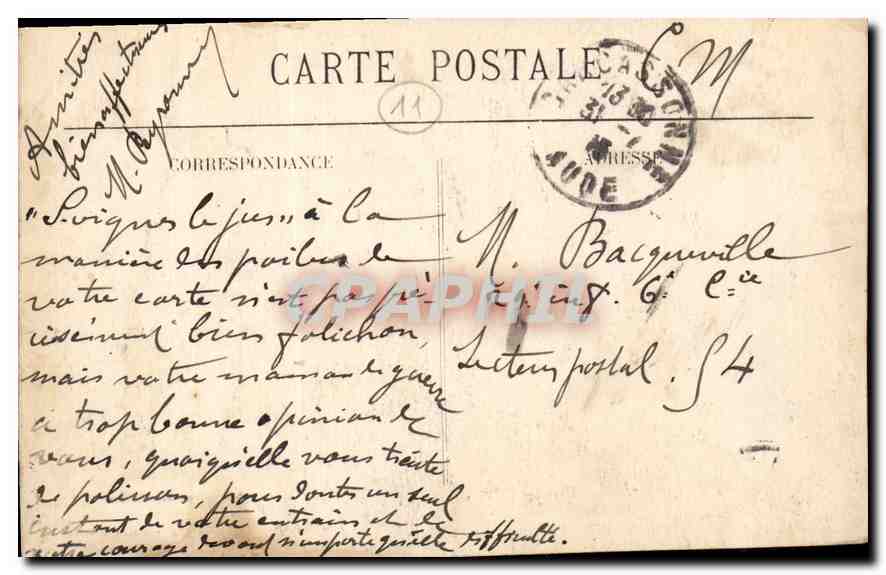 Amitiés
bien affectueuses
M.
M
CARTE POSTALE
11
CARCASSONNE
13
31 -7
AUDE
CORRESPONDANCE
ADRESSE
"Soigner le jus" à la
manière des poilus de
votre carte n'est pas pré-
cisément bien folichon,
mais votre maman de guerre
a trop bonne opinion de
vous, quoiqu'elle vous traite
de polisson, pour douter un seul
instant de votre entrain et de
votre courage devant n'importe quelle difficulté.
M. Bacqueville
inf. 6e Cie
Secteur postal. 54
CPAPHIL